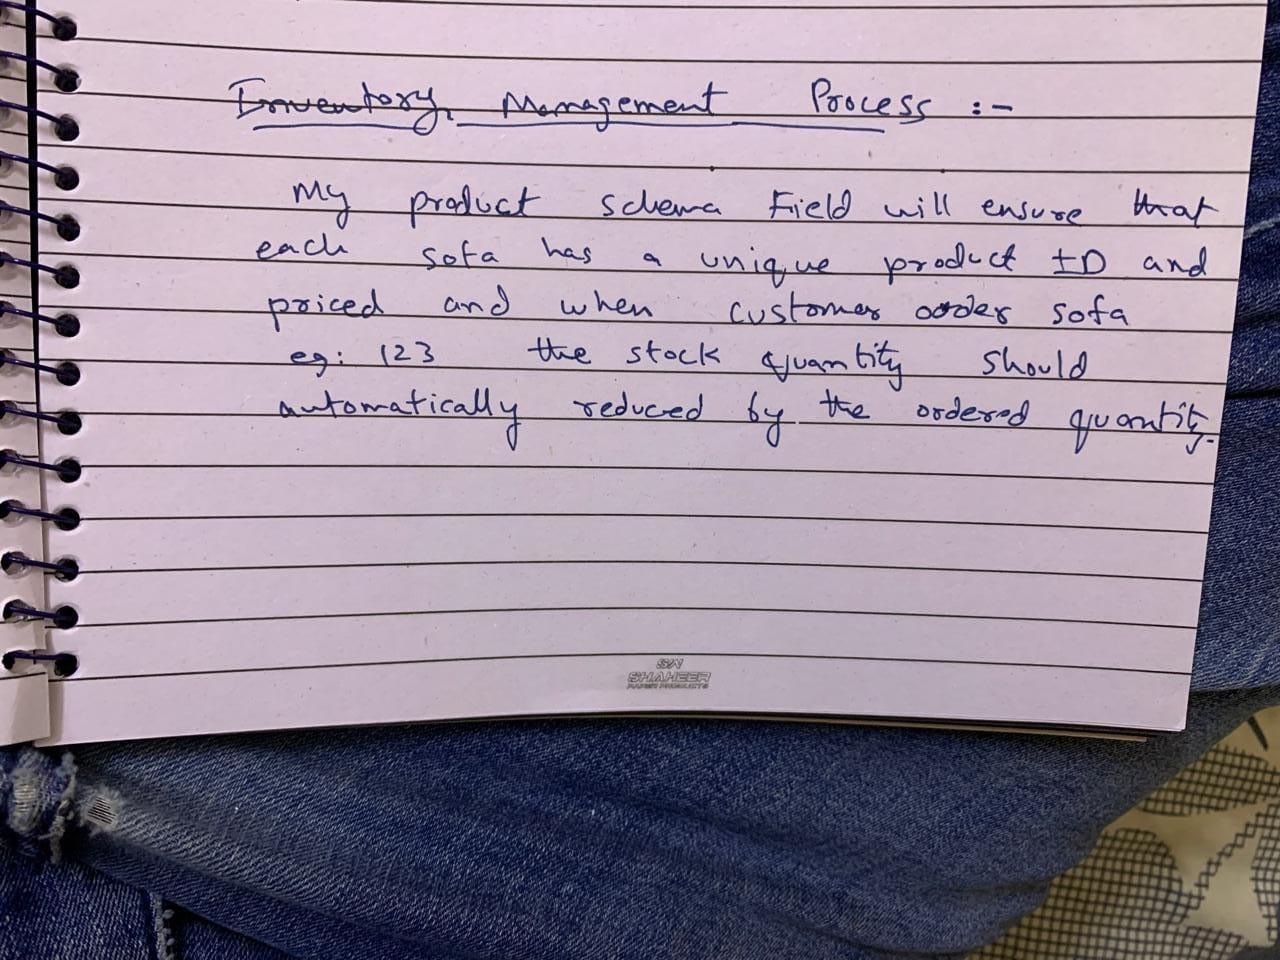 Inventory Management Process :-
My product schema Field will ensure that
each sofa has a unique product ID and
priced and when customer order sofa
eg: 123 the stock quantity should
automatically reduced by the ordered quantity.
SW
SHAHEER
PAPER PRODUCTS